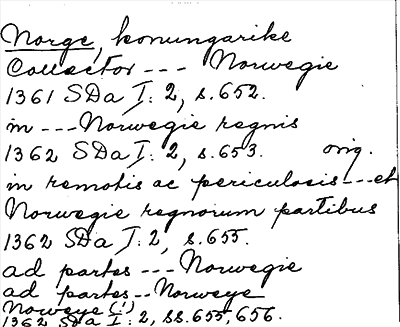 Norge, konungarike
Collector --- Norwegie
1361 SDa I: 2, s. 652.
in --- Norwegie regnis
1362 SDa I: 2, s. 653. orig.
in remotis ac periculosis --- et
Norwegie regnorum partibus
1362 SDa I: 2, s. 655.
ad partes --- Norwegie
ad partes -- Norweye
Noweye (!)
1362 SDa I: 2, ss. 655, 656.